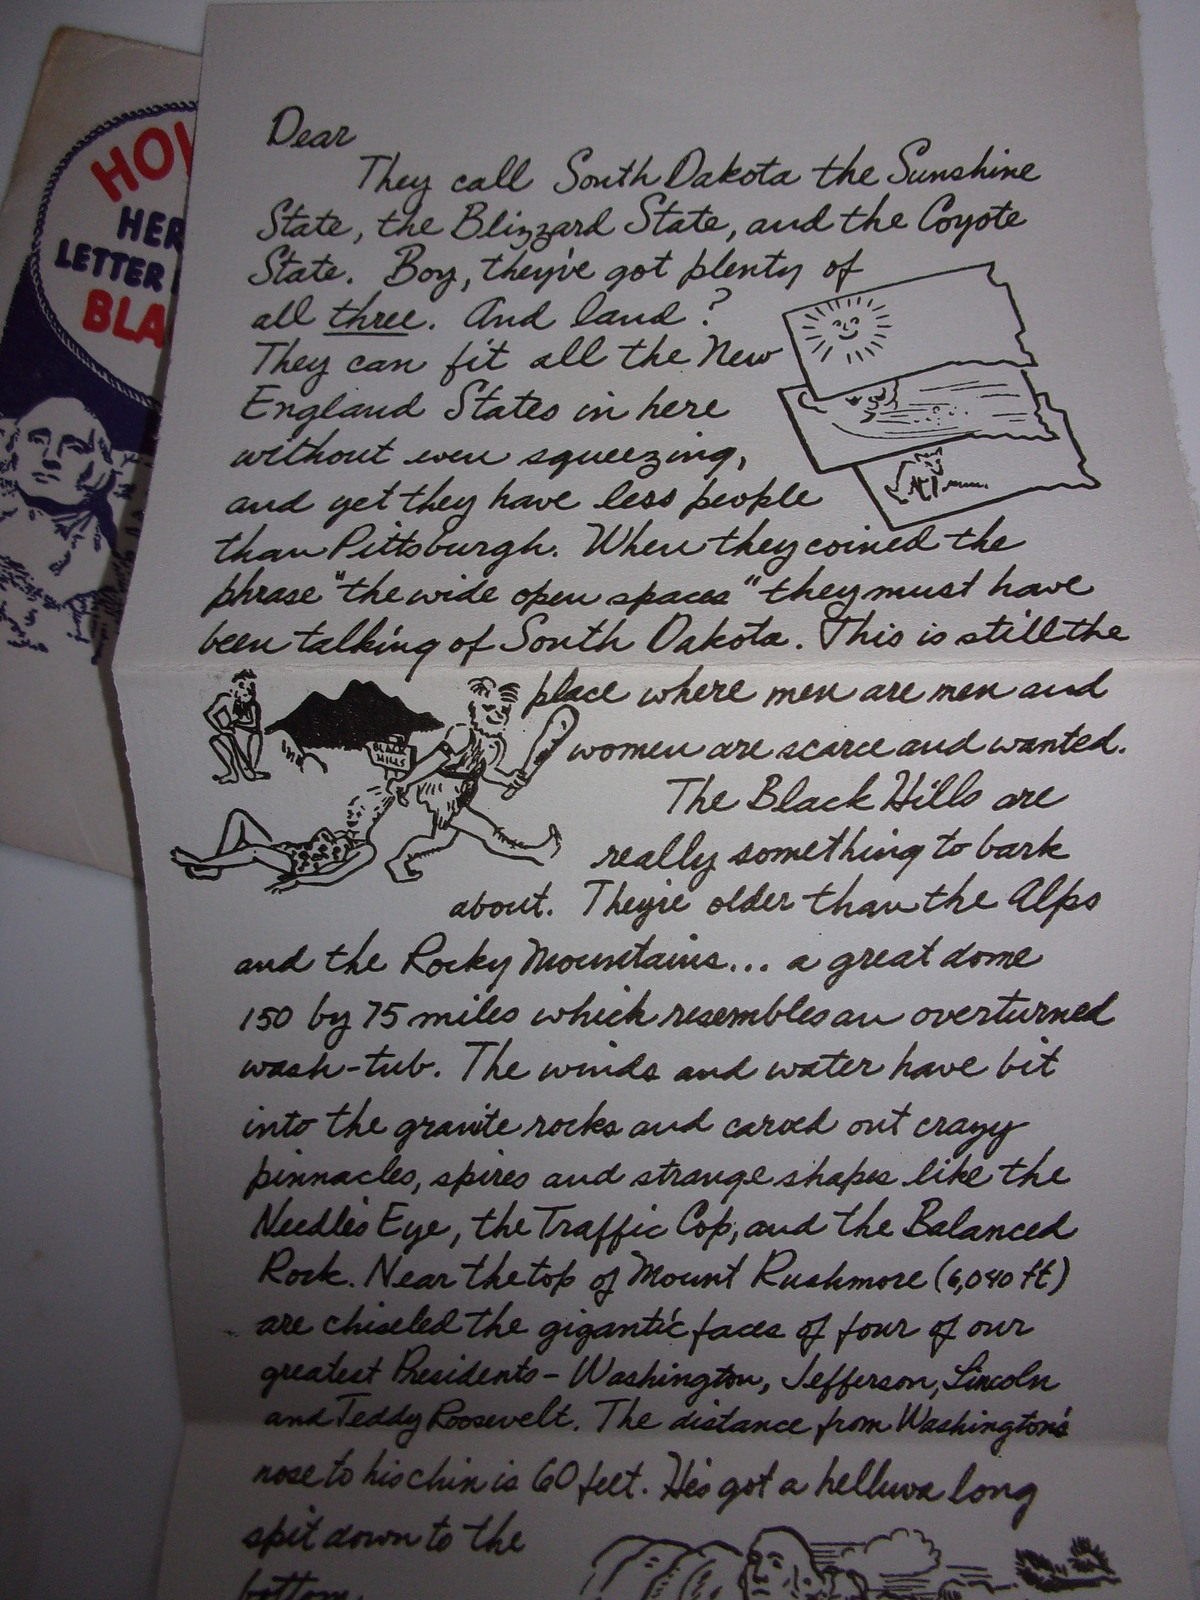 HO
HER
LETTER
BLA
Dear
They call South Dakota the Sunshine
State, the Blizzard State, and the Coyote
State. Boy, they've got plenty of
all three. And land?
They can fit all the New
England States in here
without even squeezing,
and yet they have less people
than Pittsburgh. When they coined the
phrase "the wide open spaces" they must have
been talking of South Dakota. This is still the
place where men are men and
women are scarce and wanted.
BLACK
HILLS
The Black Hills are
really something to bark
about. They're older than the Alps
and the Rocky Mountains... a great dome
150 by 75 miles which resembles an overturned
wash-tub. The winds and water have bit
into the granite rocks and carved out crazy
pinnacles, spires and strange shapes like the
Needle's Eye, the Traffic Cop, and the Balanced
Rock. Near the top of Mount Rushmore (6,040 ft)
are chiseled the gigantic faces of four of our
greatest Presidents - Washington, Jefferson, Lincoln
and Teddy Roosevelt. The distance from Washington's
nose to his chin is 60 feet. He's got a helluva long
spit down to the
bottom.